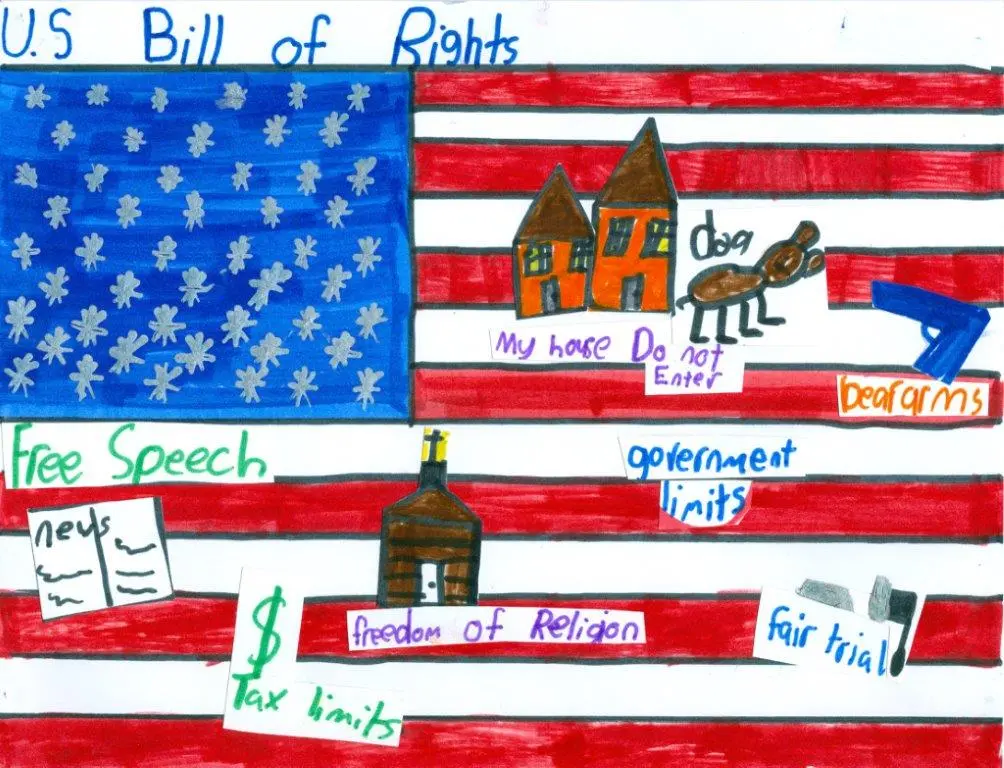 U.S Bill of Rights
dog
My house Do not
Enter
bear arms
Free Speech
government
limits
news
freedom of Religion
fair trial
$
Tax limits